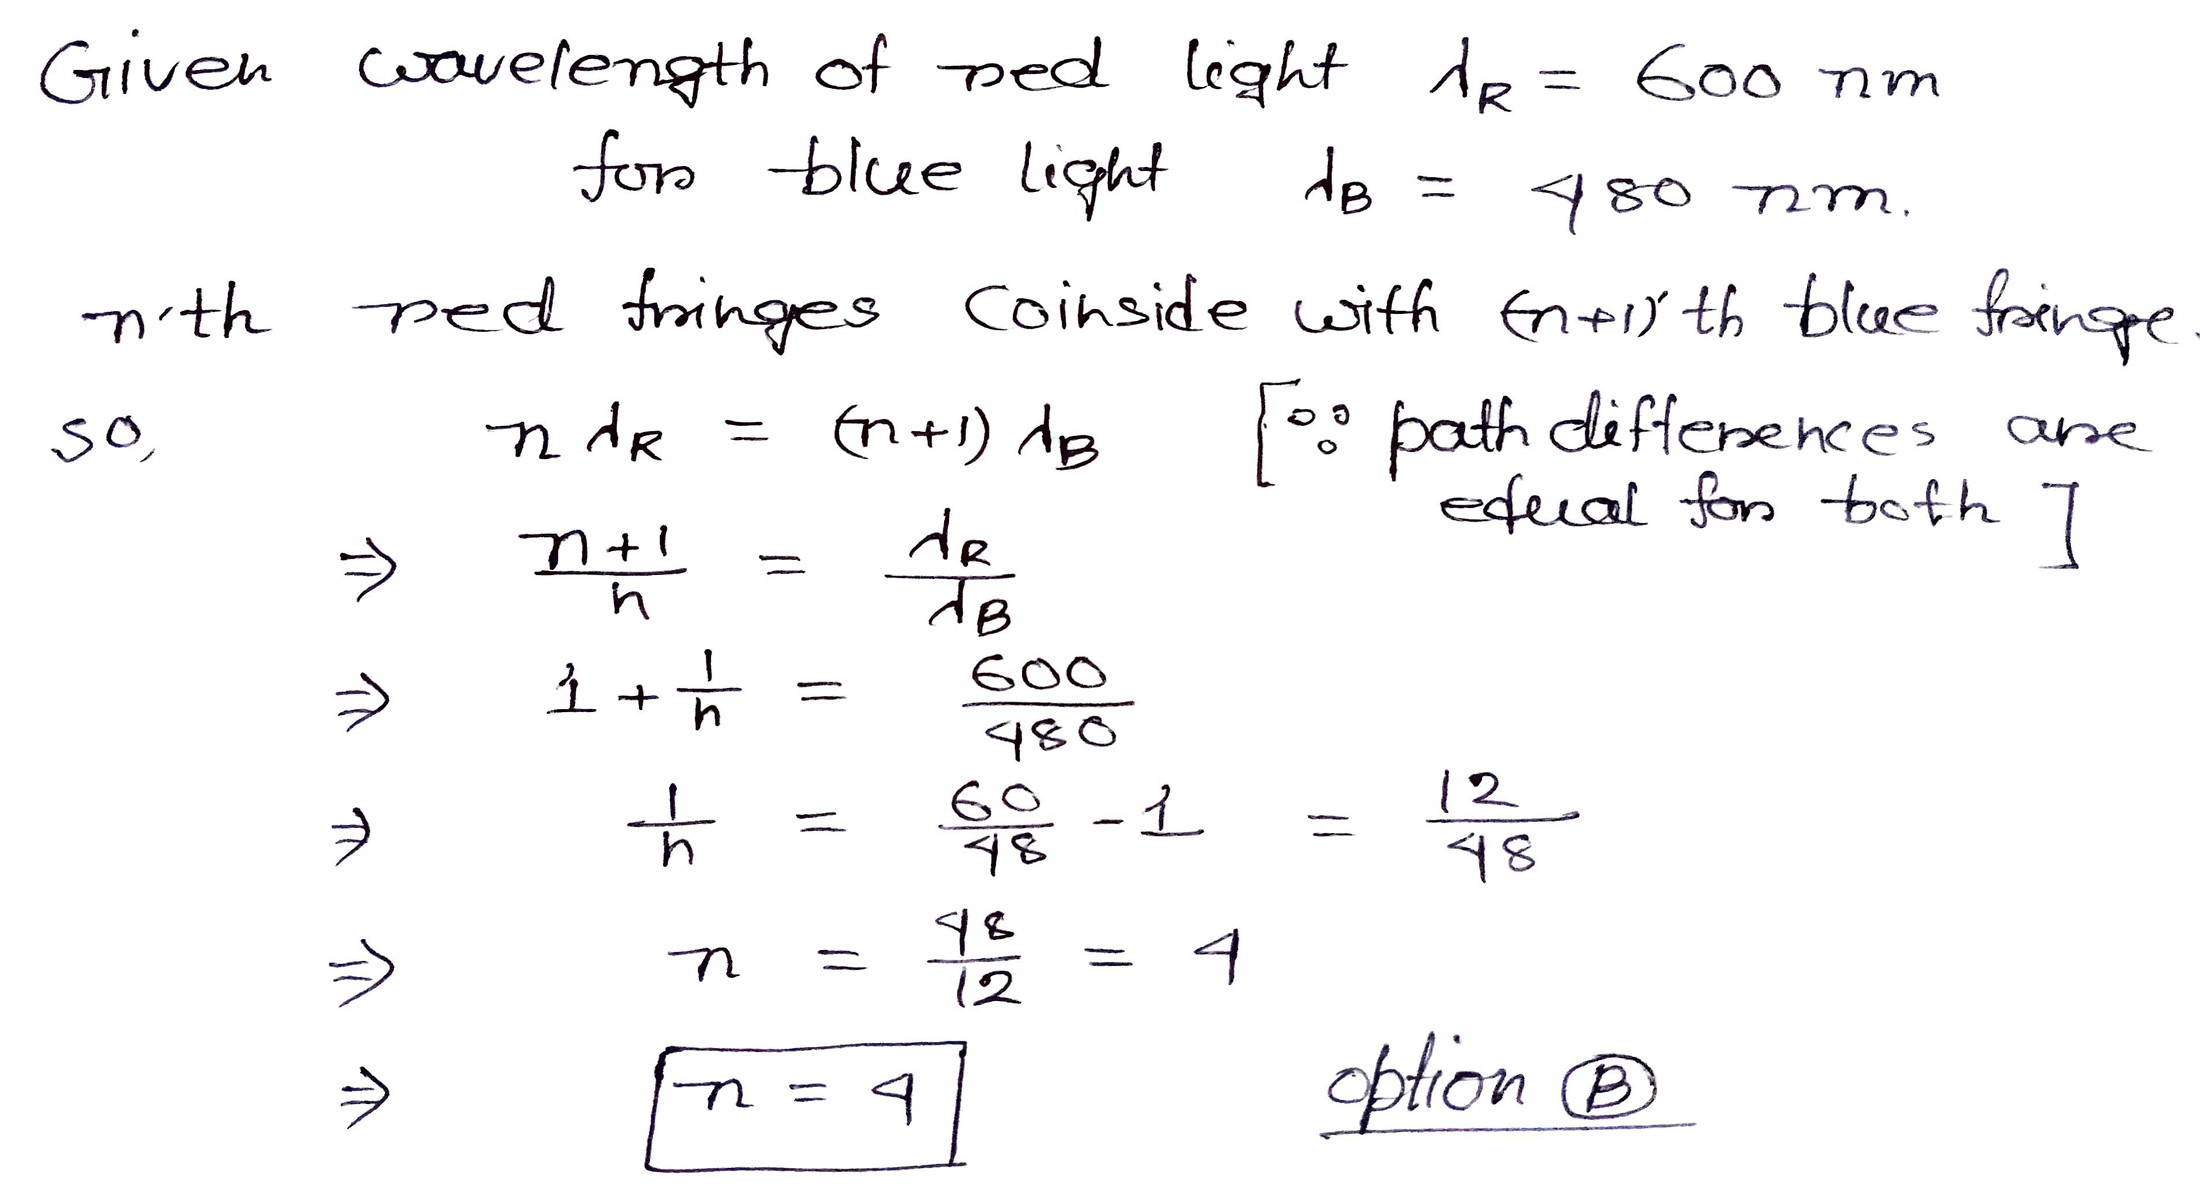 Given wavelength of red light λR = 600 nm
for blue light λB = 480 nm.
n'th red fringes coinside with (n+1)'th blue fringe.
so, n λR = (n+1) λB [∵ path differences are
equal for both ]
⇒ n+1/n = λR/λB
⇒ 1 + 1/n = 600/480
⇒ 1/n = 60/48 - 1 = 12/48
⇒ n = 48/12 = 4
⇒ n = 4 option B